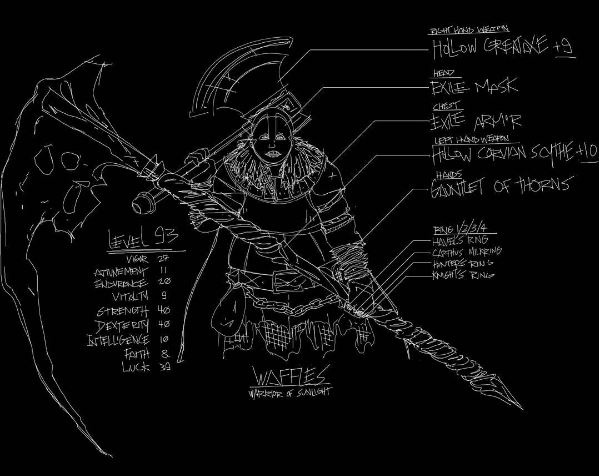 RIGHT HAND WEAPON
HOLLOW GREATAXE +9
HEAD
EXILE MASK
CHEST
EXILE ARMOR
LEFT HAND WEAPON
HOLLOW CORVIAN SCYTHE +10
HANDS
GAUNTLET OF THORNS
RING 1/2/3/4
HAVEL'S RING
CARTHUS MILKRING
HUNTER'S RING
KNIGHT'S RING
LEVEL 93
VIGOR 27
ATTUNEMENT 11
ENDURANCE 20
VITALITY 9
STRENGTH 40
DEXTERITY 40
INTELLIGENCE 10
FAITH 8
LUCK 39
WAFFLES
WARRIOR OF SUNLIGHT